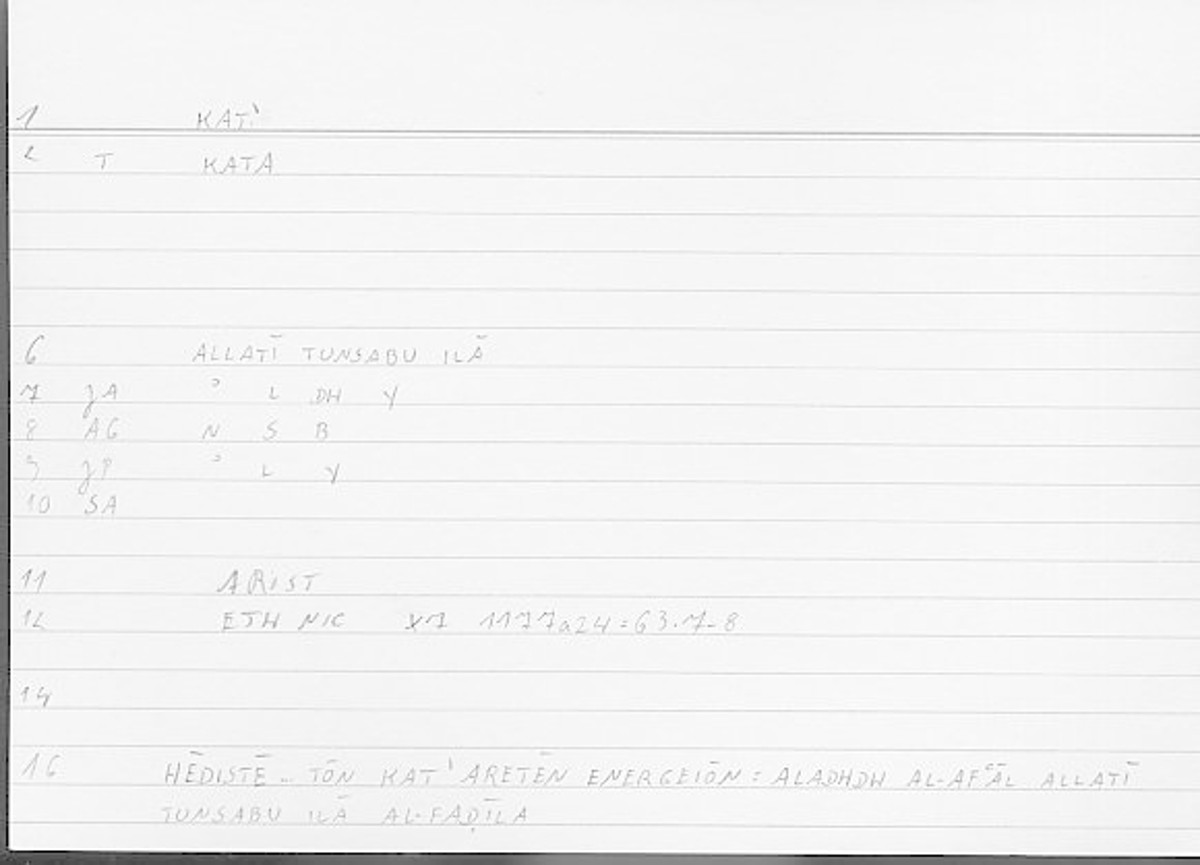 1 KAT'
2 T KATA
6 ALLATĪ TUNSABU ILĀ
7 JA ʾ L DH Y
8 AG N S B
9 JP ʾ L Y
10 SA
11 ARIST
12 ETH NIC X7 1177a24=63.7-8
14
16 HĒDISTĒ .. TŌN KAT' ARETĒN ENERGEIŌN = ALADHDH AL-AFʿĀL ALLATĪ
TUNSABU ILĀ AL-FAḌĪLA